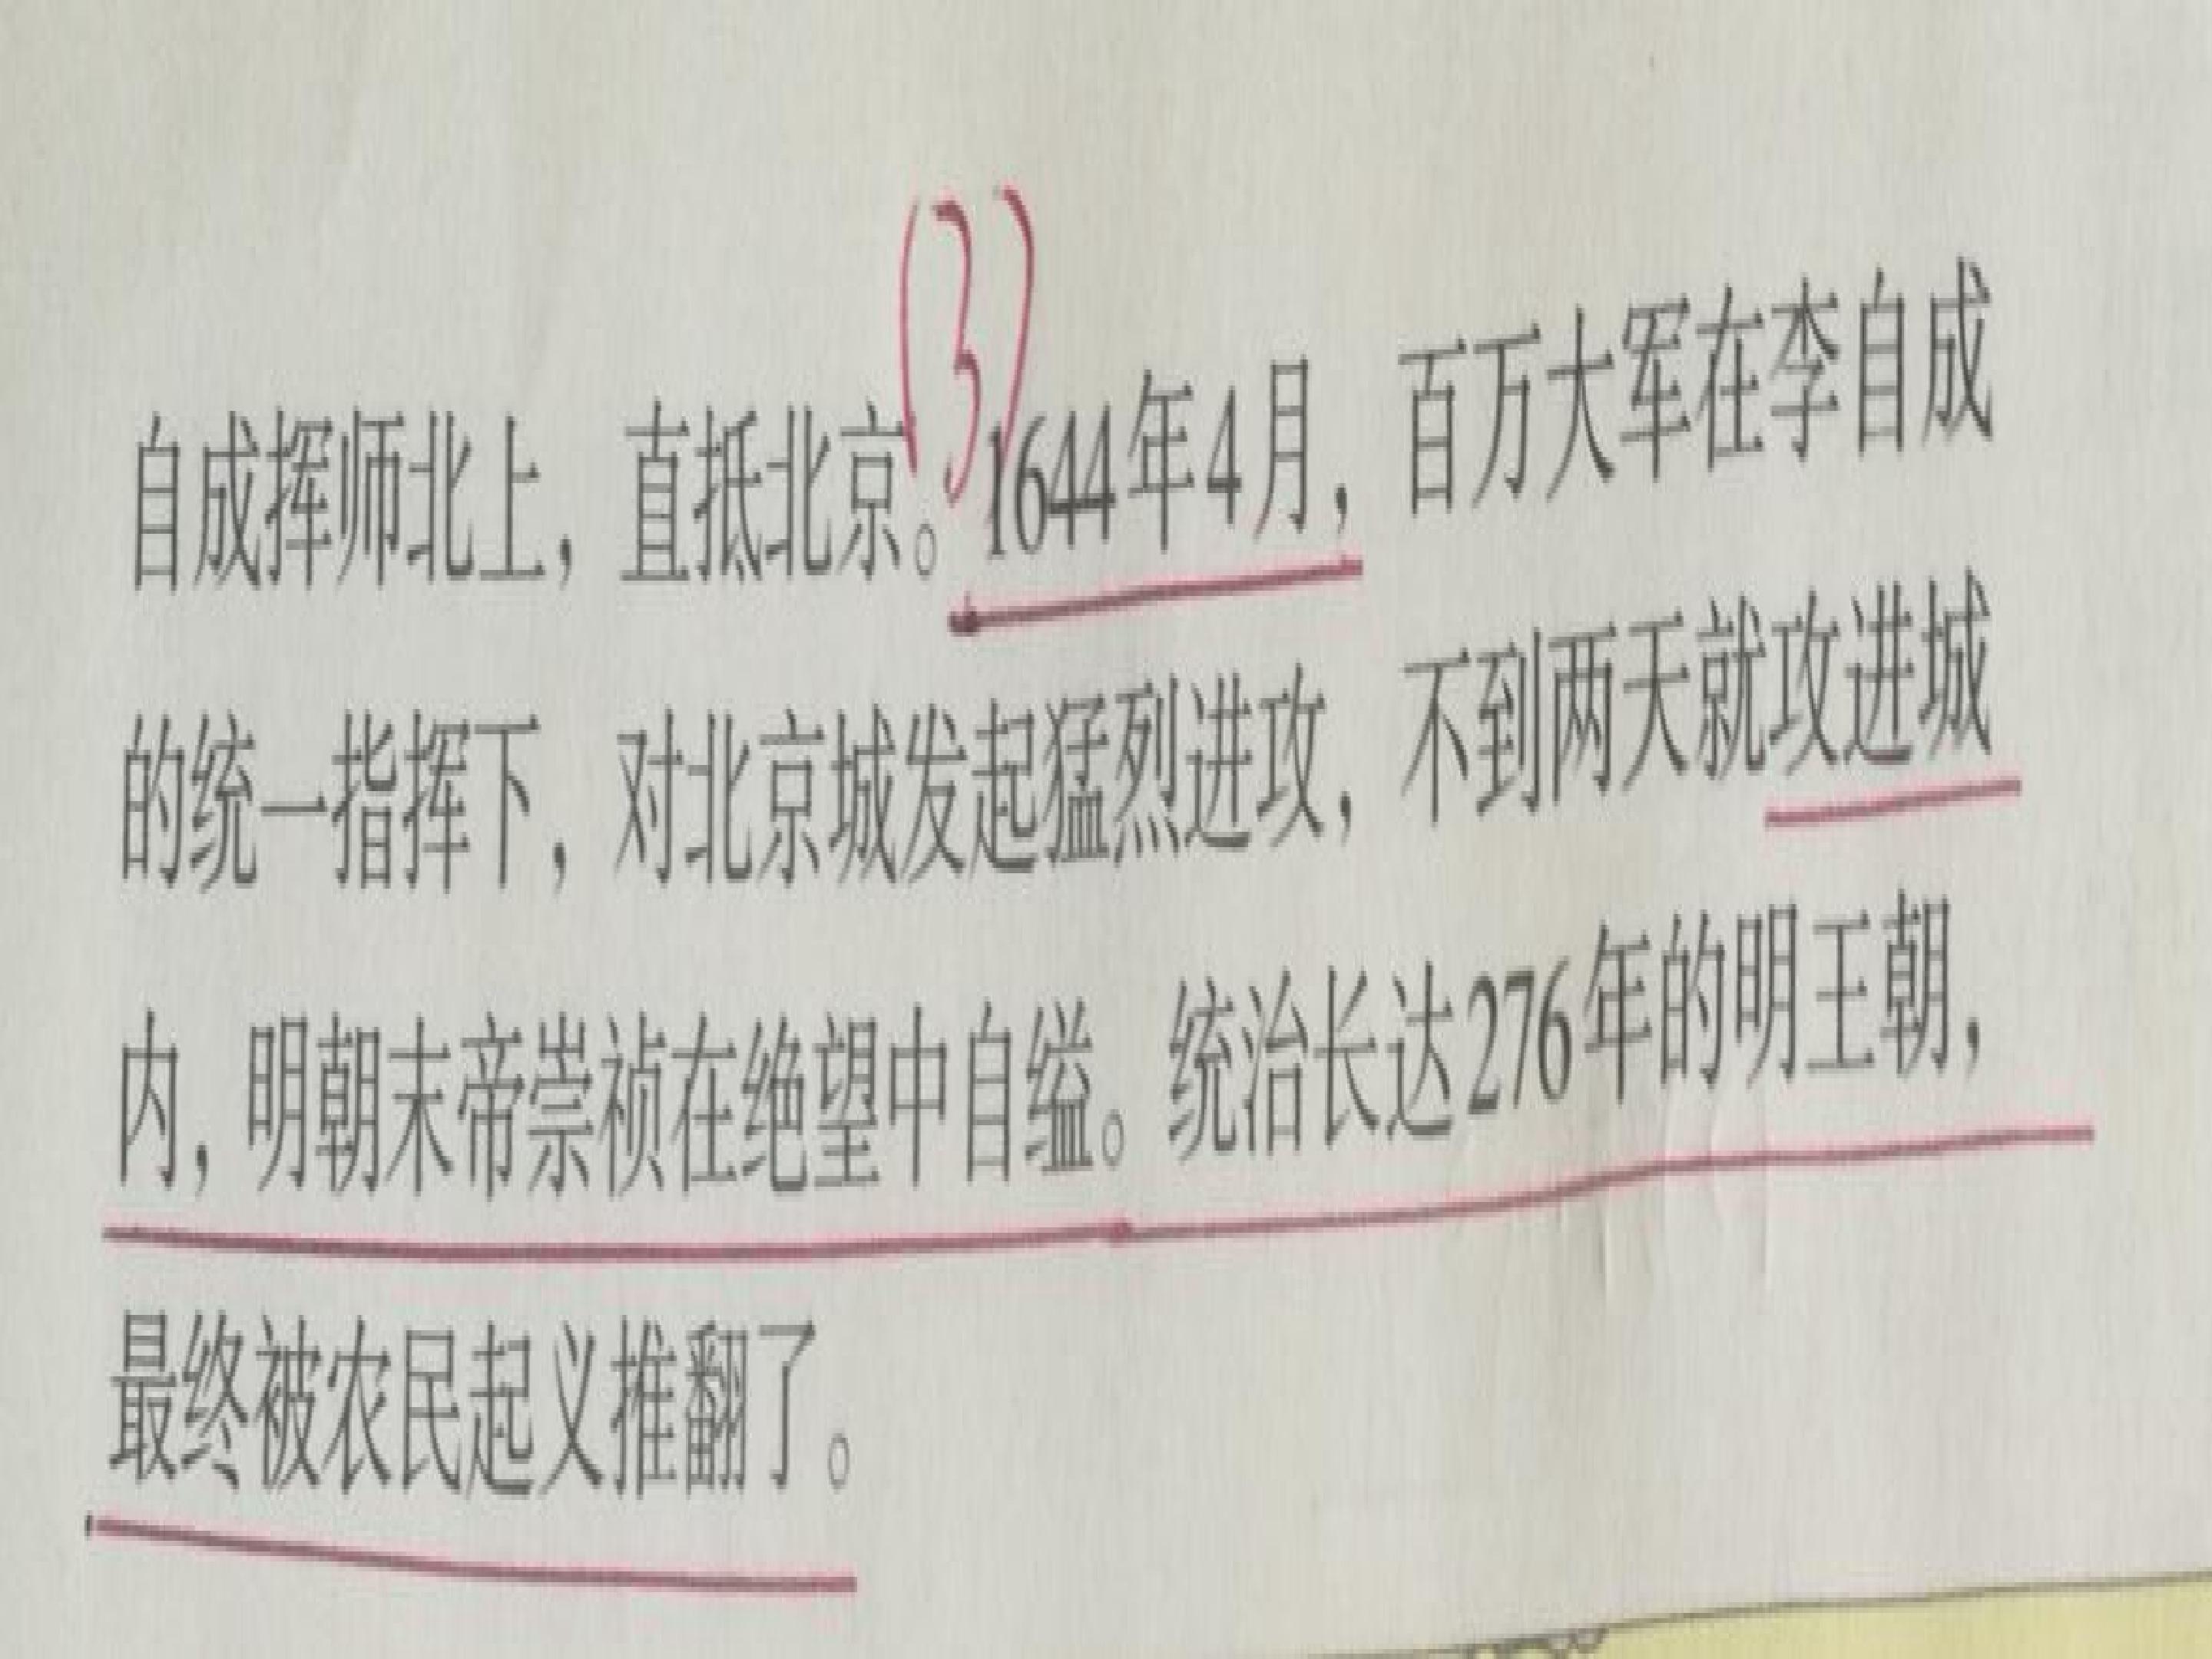 自成挥师北上，直抵北京。(3)1644年4月，百万大军在李自成
的统一指挥下，对北京城发起猛烈进攻，不到两天就攻进城
内，明朝末帝崇祯在绝望中自缢。统治长达276年的明王朝，
最终被农民起义推翻了。